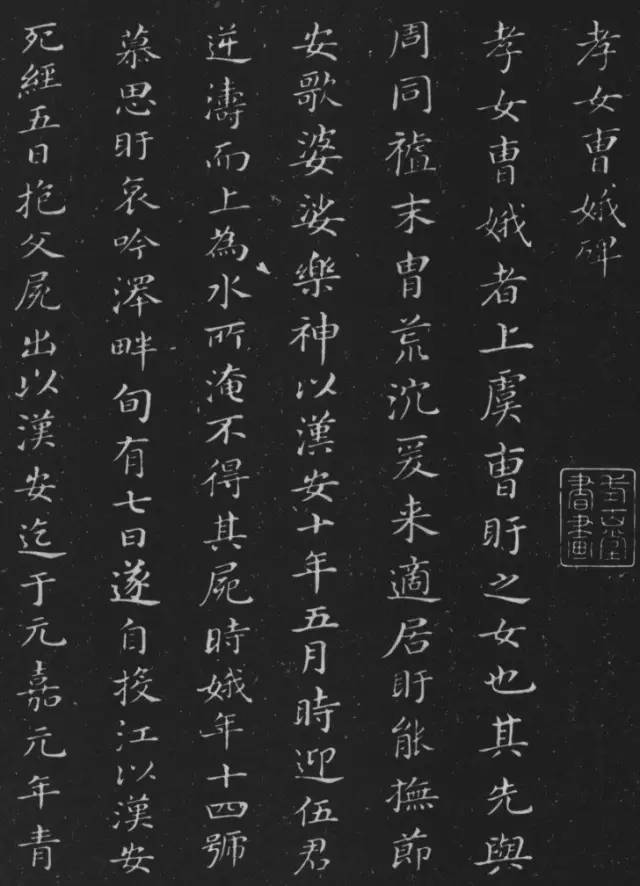 孝女曹娥碑
孝女曹娥者上虞曹盱之女也其先與
周同末胄荒沈爰来適居盱能撫節
安歌婆娑樂神以漢安十年五月時迎伍君
逆濤而上為水所淹不得其屍時娥年十四號
慕思盱哀吟澤畔旬有七日遂自投江以漢安
死經五日抱父屍出以漢安迄于元嘉元年青
書畫